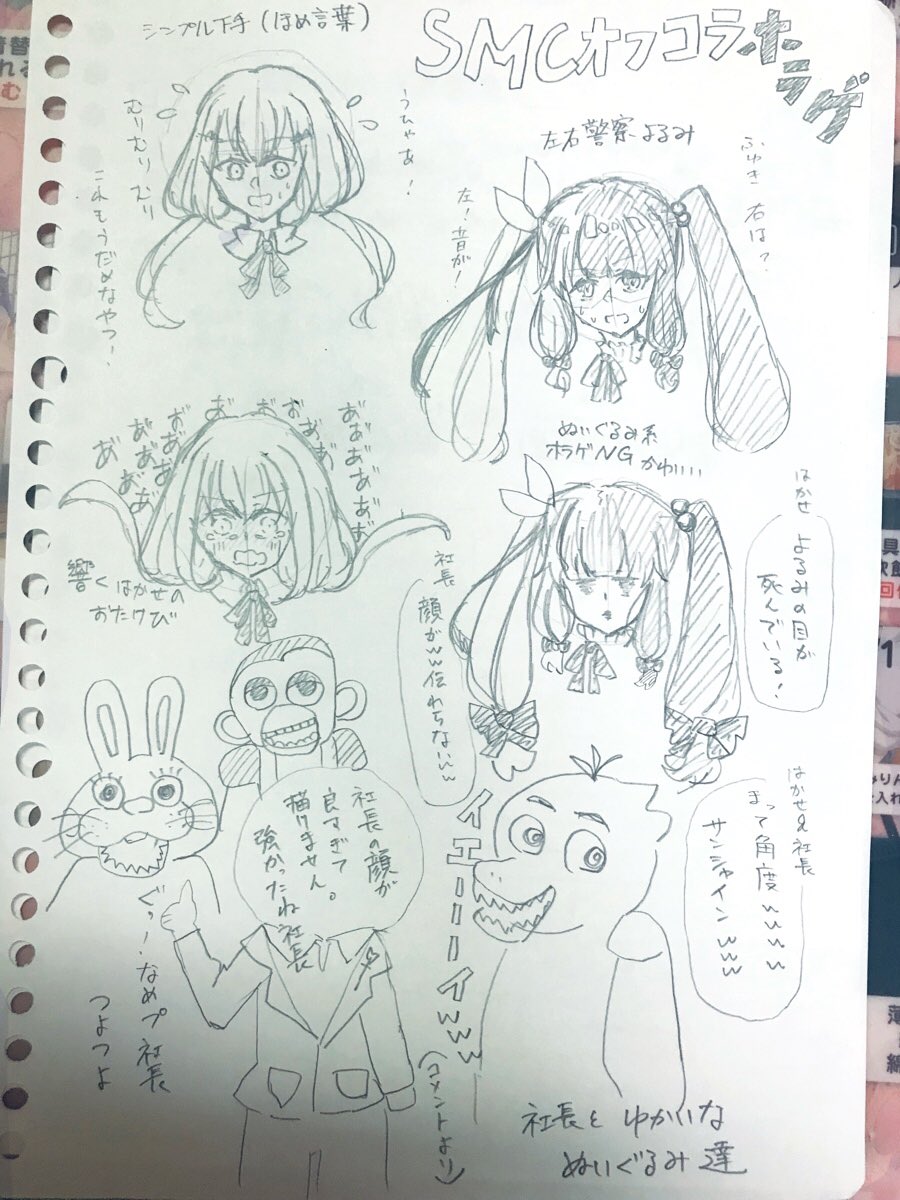 シンプル下手(ほめ言葉)
SMCオフコラボホラゲ
うちゃあ!
むりむりむり
これもうだめなやつー
左右警察よるみ
ふゆき 右は?
左!音が!
あ゛あ゛あ゛あ゛あ゛
響くはかせの
おたけび
ぬいぐるみ系
ホラゲNG かわいい
はかせ
よるみの目が
死んでいる!
社長
顔がww伝わらないww
はかせ&社長
まって角度wwww
サンシャインwww
イエーーーイwww
(コメントより)
社長の顔が
良すぎて
描けません。
強かったね社長
ぐっ!なめプ社長
つよつよ
社長とゆかいな
ぬいぐるみ達